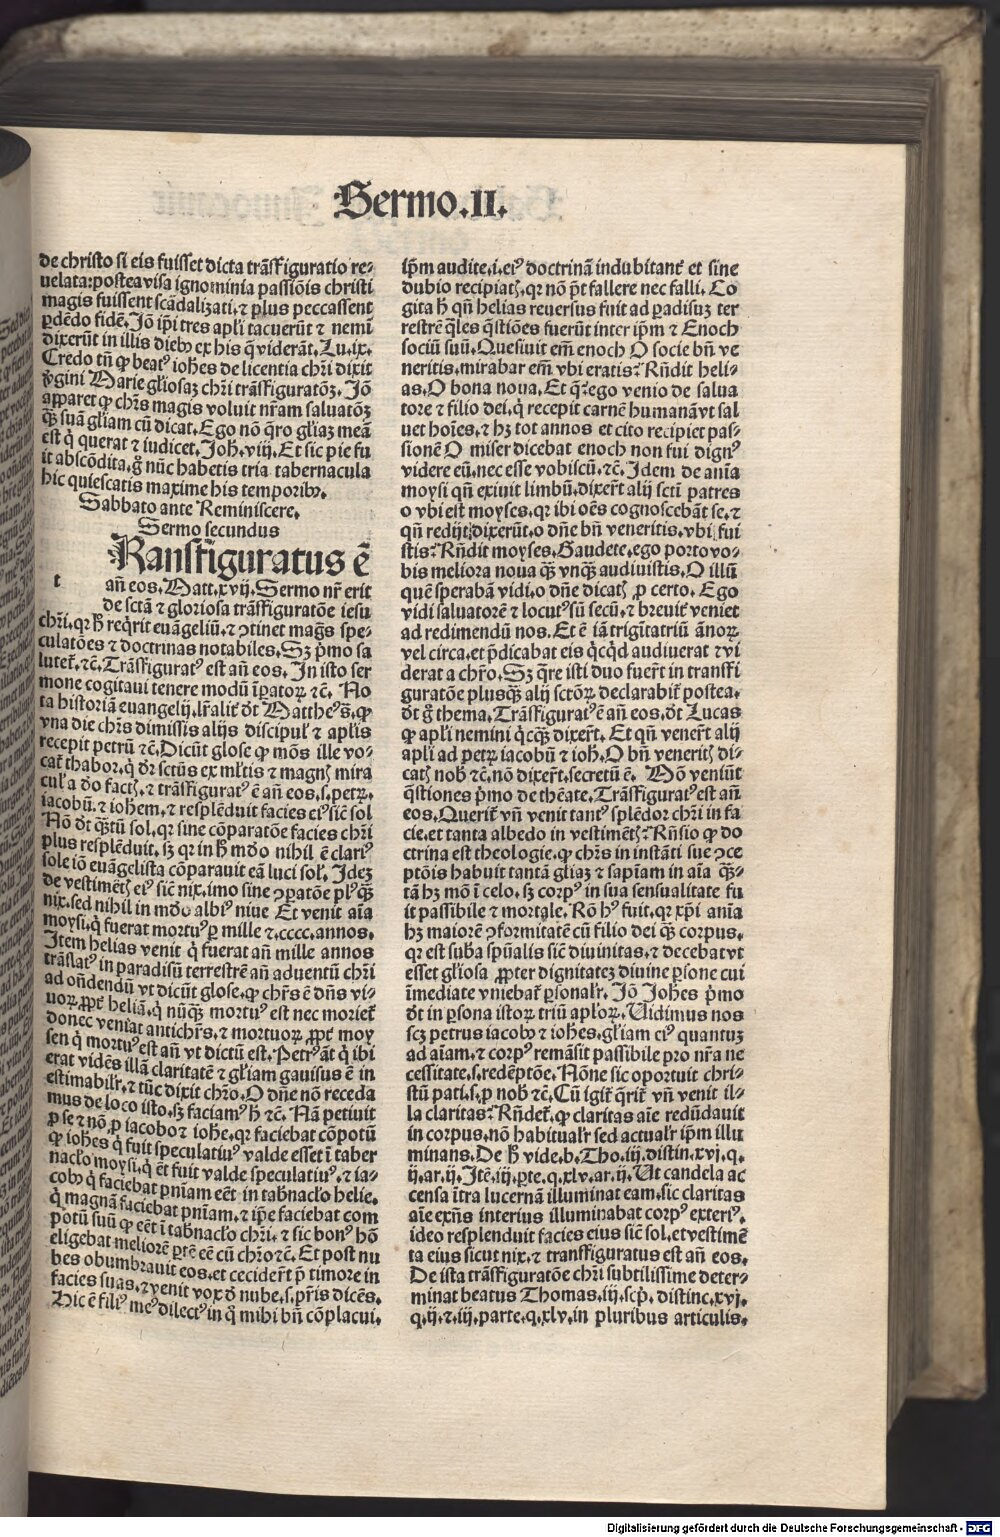 Sermo.II.
de christo si eis fuisset dicta trāsfiguratio re⸗
uelata:postea visa ignominia passiōis christi
magis fuissent scādalizati.⁊ plus peccassent
ꝑdēdo fidē.Jō ip̄i tres apl̄i tacuerūt ⁊ nemi
dixerūt in illis dieb⁹ ex his q̄ viderāt.Lu.ix.
Credo tn̄ ꝙ beat⁹ ioh̄es de licentia chr̄i dixit
v̓gini Marie gl̓iosaꝫ chr̄i trāsfiguratōꝫ.Jō
apparet ꝙ chr̄s magis voluit nr̄am saluatōꝫ
qꝫ̄ suā gl̓iam cū dicat.Ego nō q̄ro gl̓iaꝫ meā
est q̇ querat ⁊ iudicet.Joh̄.viij.Et sic pie fu
it abscōdita.g̊ nūc habetis tria tabernacula
hic quiescatis maxime his temporib⁹.
Sabbato ante Reminiscere.
Sermo secundus
t Ransfiguratus ē
an̄ eos.Matt.xvij.Sermo nr̄ erit
de sctā ⁊ gloriosa trāsfiguratōe iesu
chr̄i.qꝛ h̄ req̇rit euāgeliū.⁊ ꝯtinet maḡs spe⸗
culatōes ⁊ doctrinas notabiles.Sꝫ p̄mo sa
lutet̄.⁊c̄.Trāsfigurat⁹ est an̄ eos.In isto ser
mone cogitaui tenere modū īꝑatoꝝ ⁊c̄. No
ta historiā euangelij.lr̄alit̄ dt̄ Matthe⁹s̄.ꝙ
vna die chr̄s dimissis alijs discipul̓ ⁊ apl̄is
recepit petrū ⁊c̄.Dicūt glose ꝙ mōs ille vo⸗
cat̄ thabor.q̇ dr̄ sctūs ex ml̓tis ⁊ magn̄ mira
cul̓ a do fact̄.⁊ trāsfigurat⁹ ē an̄ eos.s.petꝝ.
iacobū.⁊ ioh̄em.⁊ resplēduit facies ei⁹ sic̄ sol
Nō dt̄ qꝫ̄tū sol.qꝛ sine cōparatōe facies chr̄i
plus resplēduit.sꝫ qꝛ in h̄ mūdo nihil ē clari⁹
sole iō euāgelista cōparauit eā luci sol̓.Jdeꝫ
de vestimēt̄ ei⁹ sic̄ nix.imo sine ꝯꝑatōe pl⁹ qꝫ̄
nix.sed nihil in mūdo albi⁹ niue Et venit aīa
moysi.q̇ fuerat mortu⁹ ꝑ mille ⁊.cccc.annos.
Jtem helias venit q̇ fuerat an̄ mille annos
trāslat⁹ in paradisū terrestrē an̄ aduentū chr̄i
ad on̄dendū vt dicūt glose.ꝙ chr̄s ē dn̄s vi⸗
uoꝝ.ꝓpt̄ heliā.q̇ nūqꝫ̄ mortu⁹ est nec moriet̄
donec veniat antichr̄s.⁊ mortuoꝝ ꝓpt̄ moy
sen q̇ mortu⁹ est an̄ vt dictū est.Petr⁹ āt q̇ ibi
erat vidēs illā claritatē ⁊ gl̓iam gauisus ē in
estimabilr̄.⁊ tūc dixit chr̄o.O dn̄e nō receda
mus de loco isto.sꝫ faciam⁹ h̄ ⁊c̄. Nā petiuit
ꝑ se ⁊ nō ꝓ iacobo⁊ ioh̄e.qꝛ faciebat cōpotū
ꝙ ioh̄es q̇ fuit speculatiu⁹ valde esset ī taber
naclo moysi.q̇ ēt fuit valde speculatiu⁹.⁊ ia⸗
cob⁹ q̇ faciebat pn̄iam eēt in tab̄naclo helie.
q̇ magnā faciebat pn̄iam.⁊ ip̄e faciebat com
potū suū ꝙ eēt ī tab̄naclo chr̄i.⁊ sic bon⁹ hō
eligebat meliorē ꝑtē eē cū chr̄o⁊c̄.Et post nu
bes obumbrauit eos.et cecider̄t p̄ timore in
facies suas.⁊ venit vox d̄ nube.s.pr̄is dicēs.
Hic ē fili⁹ me⁹ dilect⁹ in q̇ mihi bn̄ cōplacui.
ip̄m audite.i.ei⁹ doctrinā indubitant̄ et sine
dubio recipiat̄.qꝛ nō pt̄ fallere nec falli. Co
gita h̄ qn̄ helias reuersus fuit ad ꝑadisuꝫ ter
restrē q̄les q̄stiōes fuerūt inter ip̄m ⁊ Enoch
sociū suū.Quesiuit em̄ enoch O socie bn̄ ve
neritis.mirabar em̄ vbi eratis? Rn̄dit heli⸗
as.O bona noua.Et q̄?ego venio de salua
tore ⁊ filio dei.q̇ recepit carnē humanā vt sal
uet hoīes.⁊ hꝫ tot annos et cito recipiet pas⸗
sionē O miser dicebat enoch non fui dign⁹
videre eū.nec esse vobiscū.⁊c̄. Jdem de anīa
moysi qn̄ exiuit limbū.dixer̄t alij sctī patres
o vbi est moyses.qꝛ ibi oēs cognoscebāt se.⁊
qn̄ redijt.dixerūt.o dn̄e bn̄ veneritis.vbi fui
stis? Rn̄dit moyses.Gaudete.ego porto vo⸗
bis meliora noua qꝫ̄ vnqꝫ̄ audiuistis.O illū
quē sperabā vidi.o dn̄e dicat̄ ꝓ certo. Ego
vidi saluatorē ⁊ locut⁹sū secū.⁊ breuit̄ veniet
ad redimendū nos.Et ē iā trigītatriū ānoꝝ
vel circa.et p̄dicabat eis q̇cq̇d audiuerat ⁊ vi
derat a chr̄o.Sꝫ q̄re isti duo fuer̄t in transfi
guratōe plusqꝫ̄ alij sctōꝝ declarabit̄ postea.
dt̄ g̊ thema.Trāsfigurat⁹ ē an̄ eos.dt̄ Lucas
ꝙ apl̄i nemini q̇cqꝫ̄ dixer̄t. Et qn̄ vener̄t alij
apl̄i ad petꝝ iacobū ⁊ ioh̄.O bn̄ venerit̄ di⸗
cat̄ nob̄ ⁊c̄.nō dixer̄t.secretū ē. Mō veniūt
q̄stiones p̄mo de thēate.Trāsfigurat⁹ est an̄
eos.Querit̄ vn̄ venit tant⁹ splēdor chr̄i in fa
cie.et tanta albedo in vestimēt̄? Rn̄sio ꝙ do
ctrina est theologie.ꝙ chr̄s in instāti sue ꝯce
ptōis habuit tantā gl̓iaꝫ ⁊ sapīam in aīa qꝫ̄⸗
tā hꝫ mō ī celo.sꝫ corp⁹ in sua sensualitate fu
it passibile ⁊ mortale.Rō h⁹ fuit.qꝛ xp̄i anīa
hꝫ maiorē ꝯformitatē cū filio dei qꝫ̄ corpus.
qꝛ est suba sp̄ualis sic̄ diuinitas.⁊ decebat vt
esset gl̓iosa ꝓpter dignitateꝫ diuine ꝑsone cui
īmediate vniebat̄ ꝑsonalr̄. Jō Joh̄es p̄mo
dt̄ in ꝑsona istoꝝ triū apl̓oꝝ.Vidimus nos
scꝫ petrus iacob⁹ ⁊ ioh̄es.gl̓iam ei⁹ quantuꝫ
ad aīam.⁊ corp⁹ remāsit passibile pro nr̄a ne
cessitate.s.redēptōe.Nōne sic oportuit chri⸗
stū pati.s.ꝓ nob̄ ⁊c̄.Cū igit̄ q̄rit̄ vn̄ venit il⸗
la claritas? Rn̄det̄.ꝙ claritas aīe redūdauit
in corpus.nō habitualr̄ sed actualr̄ ip̄m illu
minans.De h̄ vide.b.Tho.iij.distin.xvj.q.
ij.ar.ij.Jtē.iij.ꝑte.q.xlv.ar.ij. Ut candela ac
censa ītra lucernā illuminat eam.sic claritas
aīe exn̄s interius illuminabat corp⁹ exteri⁹.
ideo resplenduit facies eius sic̄ sol.et vestimē
ta eius sicut nix.⁊ transfiguratus est an̄ eos.
De ista trāsfiguratōe chr̄i subtilissime deter⸗
minat beatus Thomas.iij.scp̄. distinc.xvj.
q.ij.⁊.iij.parte.q.xlv.in pluribus articulis.
Digitalisierung gefördert durch die Deutsche Forschungsgemeinschaft - DFG